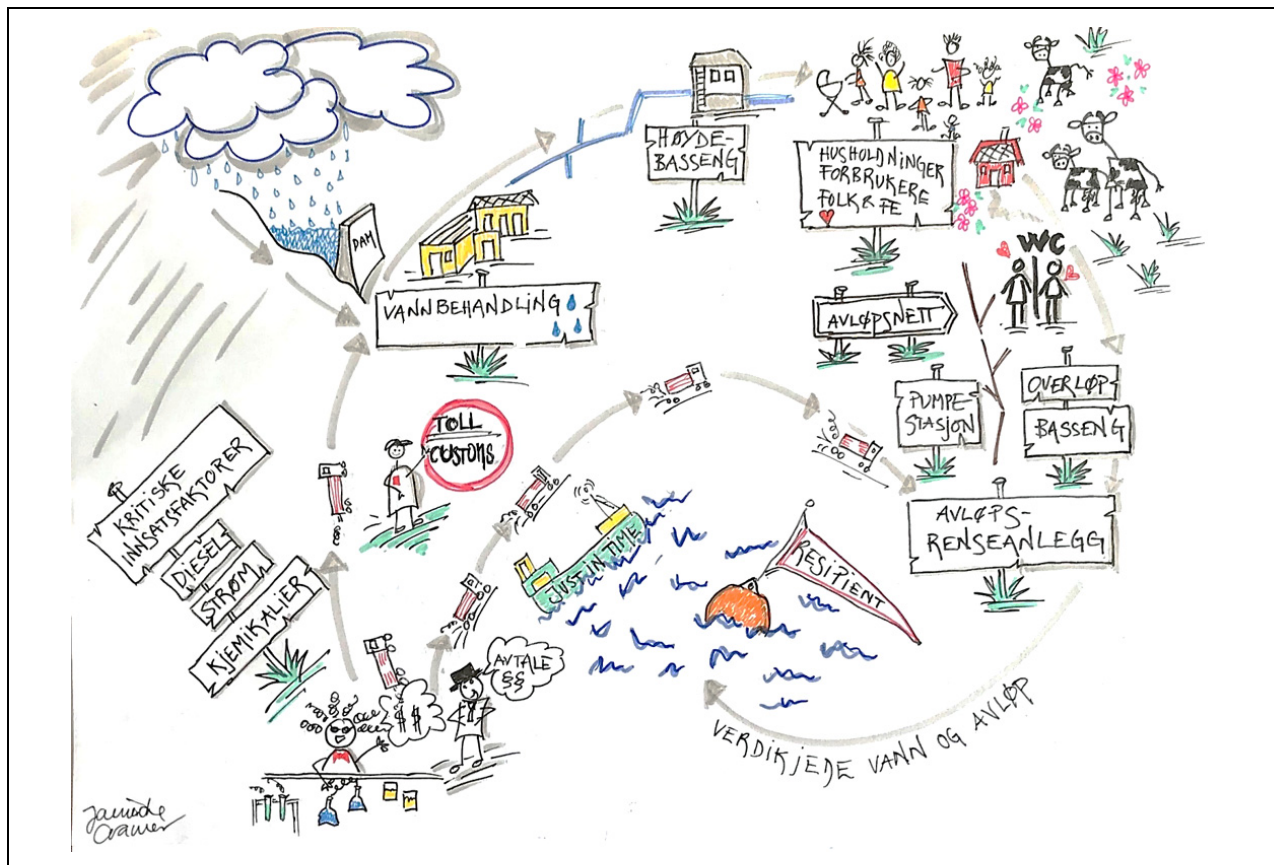 DAM
HØYDE-
BASSENG
HUSHOLDNINGER
FORBRUKERE
FOLK & FE
VANNBEHANDLING
WC
AVLØPSNETT
PUMPE-
STASJON
OVERLØP
BASSENG
AVLØPS-
RENSEANLEGG
TOLL
CUSTOMS
KRITISKE
INNSATSFAKTORER
DIESEL
STRØM
KJEMIKALIER
JUST IN TIME
RESIPIENT
AVTALE
§§
$ $
VERDIKJEDE VANN OG AVLØP
Cramer